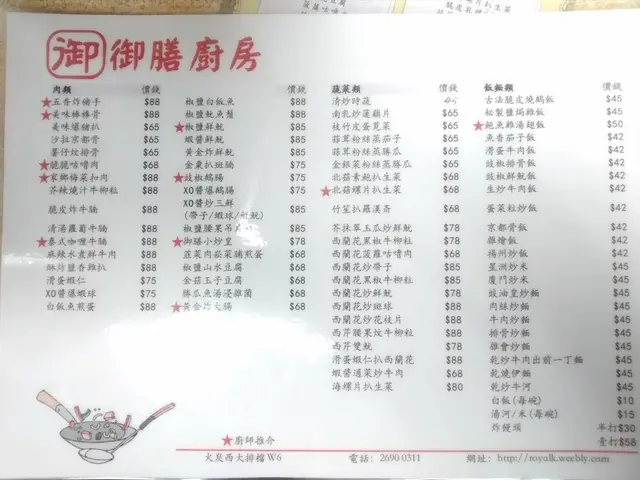 御 御膳廚房
肉類 價錢
★五香炸豬手 $88
★美味棒棒骨 $88
美味爆豬扒 $65
沙拉京都骨 $65
薑仔炆排骨 $65
★脆脆咕嚕肉 $68
★家鄉梅菜扣肉 $88
芥辣燒汁牛柳粒 $88
脆皮炸牛腩 $88
清湯蘿蔔牛腩 $88
★泰式咖喱牛腩 $88
麻辣水煮鮮牛肉 $88
酥炸鹽香雞扒 $88
滑蛋蝦仁 $75
XO醬爆蝦球 $75
白飯魚煎蛋 $88
價錢
椒鹽白飯魚 $88
椒鹽魷魚鬚 $88
★椒鹽鮮魷 $85
蝦醬鮮魷 $85
黃金炸鮮魷 $85
金栗扒斑腩 $75
★豉椒鵝腸 $75
XO醬爆鵝腸 $75
XO醬炒三鮮
(帶子/蝦球/鮮魷) $85
椒鹽腰果丹 $85
★御膳小炒皇 $78
韮菜肉崧菜脯煎蛋 $68
椒鹽山水豆腐 $68
金菇玉子豆腐 $68
勝瓜魚湯浸雜菌 $68
★黃金炸大腸 $68
蔬菜類 價錢
清炒時蔬
南乳炒蓮藕片 $65
枝竹皮蛋莧菜 $65
蒜茸粉絲蒸茄子 $65
蒜茸粉絲蒸勝瓜 $65
金銀菜粉絲蒸勝瓜 $65
北菇素鮑扒生菜 $68
★北菇螺片扒生菜 $68
竹笙扒羅漢齋 $68
芥抹草玉瓜炒鮮魷 $78
西蘭花黑椒牛柳粒 $88
西蘭花菠蘿咕嚕肉 $68
西蘭花炒帶子 $85
西蘭花黑椒牛柳粒 $85
西蘭花炒鮮魷 $78
西蘭花炒斑球 $88
西蘭花炒花枝片 $88
西芹腰果炆牛柳粒 $88
西芹雙魷 $78
滑蛋蝦仁扒西蘭花 $88
蝦醬通菜炒牛肉 $68
海螺片扒生菜 $80
飯麵類 價錢
古法脆皮燒鵝飯 $45
松製鹽焗雞飯 $45
★鮑魚雞湯翅飯 $50
魚香茄子飯 $42
滑蛋牛肉飯 $42
豉椒排骨飯 $42
豉椒鮮魷飯 $42
生炒牛肉飯 $42
蛋菜粒炒飯 $42
京都骨飯 $42
雜燴飯 $42
揚州炒飯 $42
星洲炒米 $45
廈門炒米 $45
豉油皇炒麵 $45
肉絲炒麵 $45
牛肉炒麵 $45
排骨炒麵 $45
雜會炒麵 $45
乾炒牛肉出前一丁麵 $45
乾燒伊麵 $45
乾炒牛河 $45
白飯(每碗) $10
湯河/米(每碗) $15
炸饅頭 半打$30
壹打$58
★廚師推介
火炭西大排檔W6 電話: 2690 0311 網址: http://royalk.weebly.com